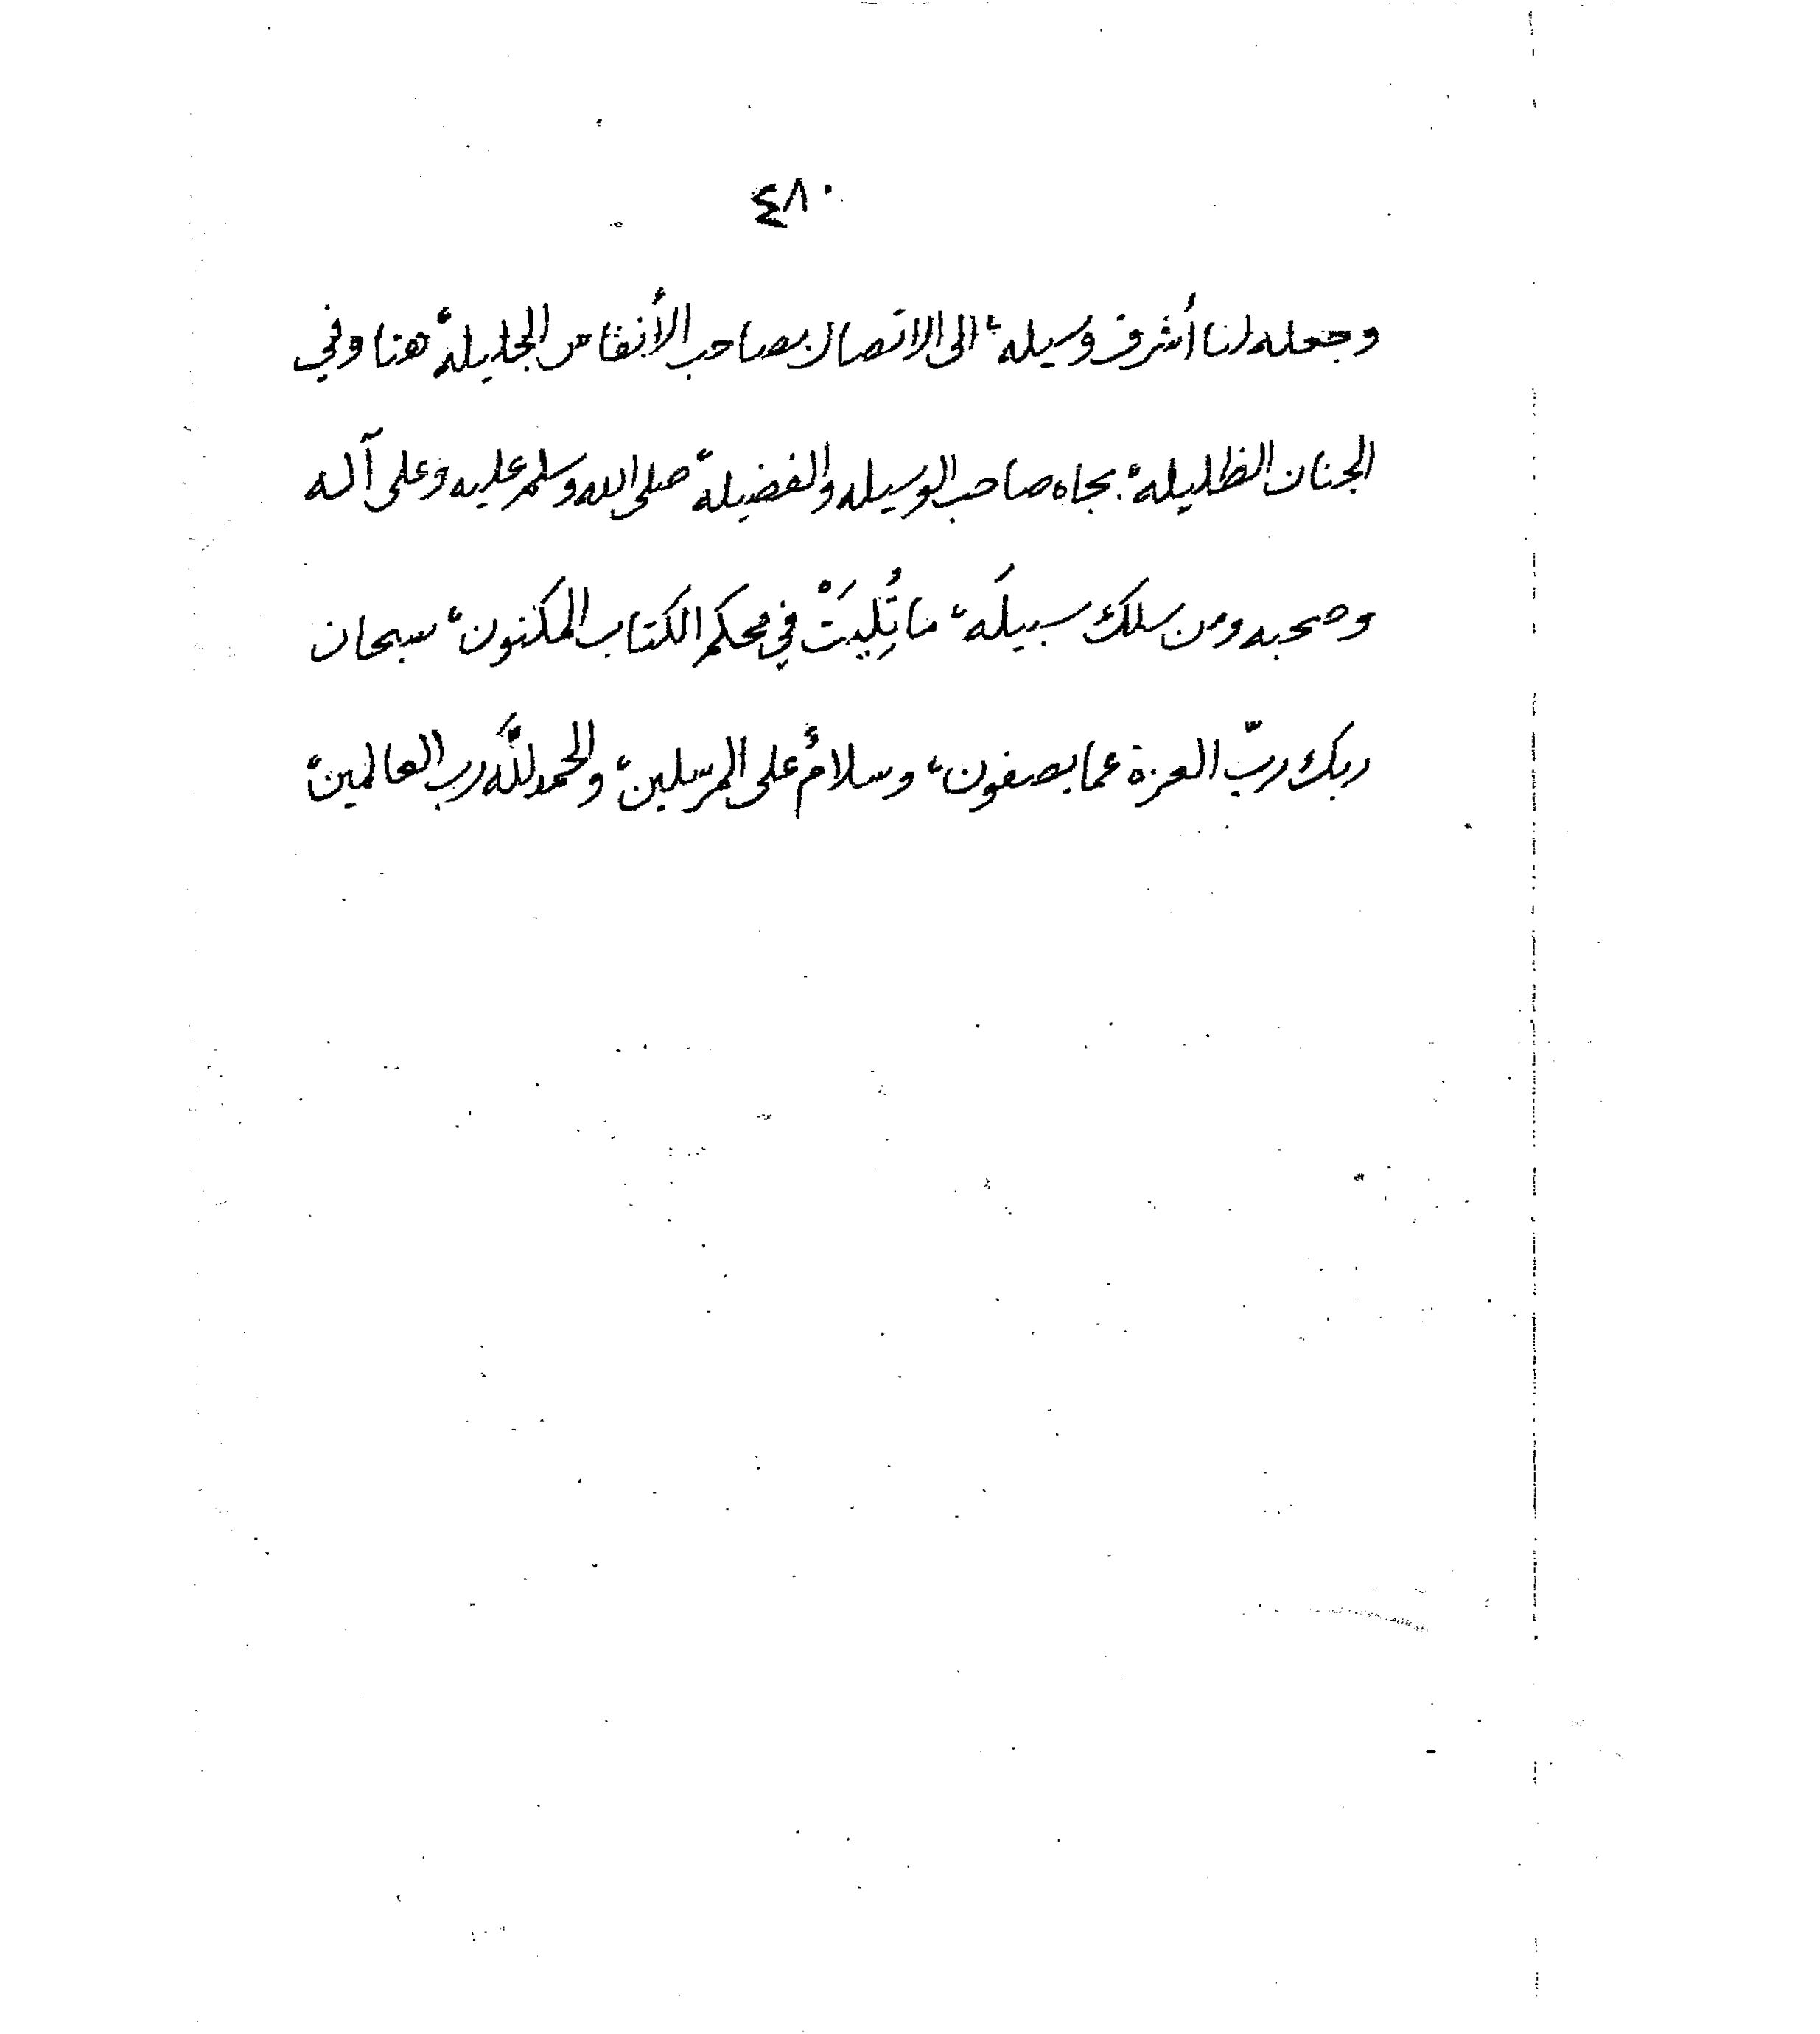 ٤٨٠
وجعله لنا أشرف وسيله، الى الاتصال بصاحب الأنفاس الجليلة، هنا وفي
الجنان الظليلة، بجاه صاحب الوسيله والفضيلة، صلى الله وسلم عليه وعلى آله
وصحبه ومن سلك سبيلَه، ما تُلِيَتْ في محكم الكتاب المكنون، سبحان
ربك ربّ العزة عما يصفون، وسلامٌ على المرسلين، والحمد للَّه رب العالمين،